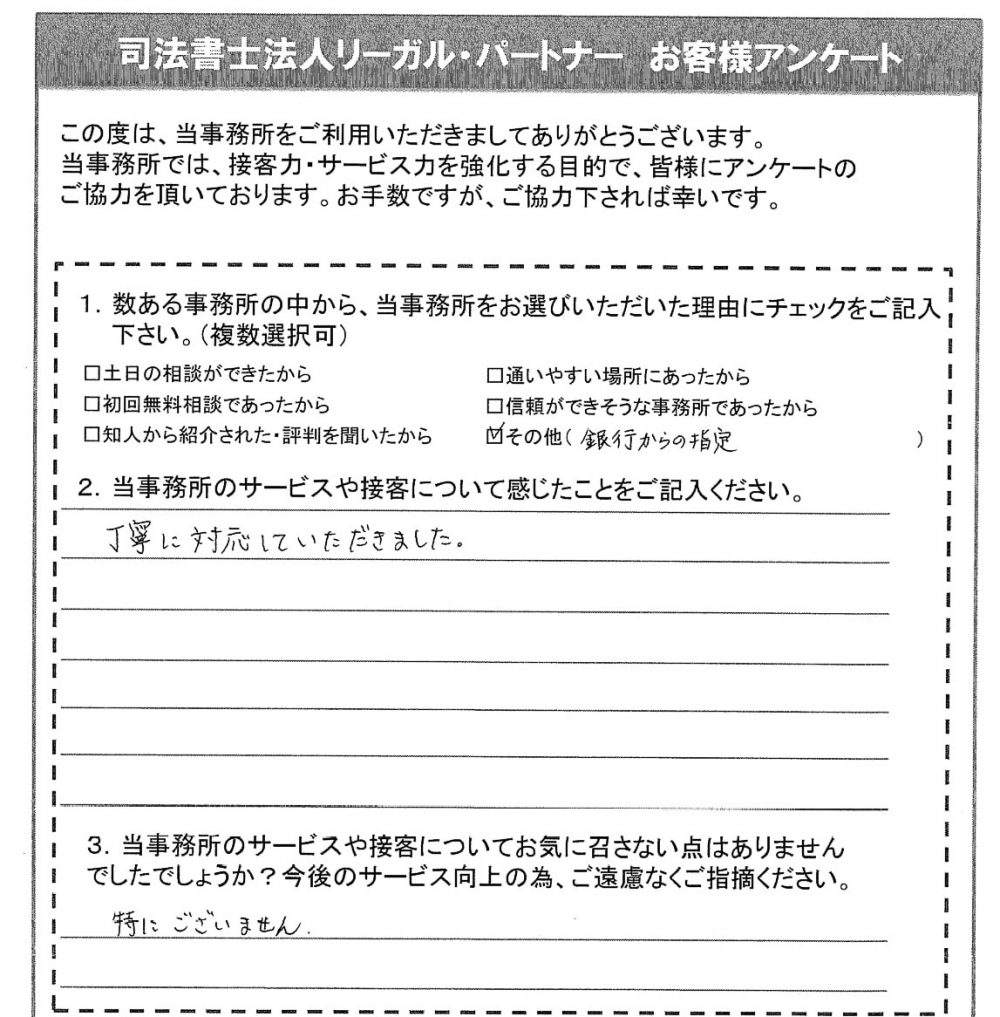 司法書士法人リーガル・パートナー お客様アンケート
この度は、当事務所をご利用いただきましてありがとうございます。
当事務所では、接客力・サービス力を強化する目的で、皆様にアンケートの
ご協力を頂いております。お手数ですが、ご協力下されば幸いです。
1. 数ある事務所の中から、当事務所をお選びいただいた理由にチェックをご記入
下さい。(複数選択可)
□土日の相談ができたから
□通いやすい場所にあったから
□初回無料相談であったから
□信頼ができそうな事務所であったから
□知人から紹介された・評判を聞いたから
☑その他( 銀行からの指定 )
2. 当事務所のサービスや接客について感じたことをご記入ください。
丁寧に対応していただきました。
3. 当事務所のサービスや接客についてお気に召さない点はありません
でしたでしょうか?今後のサービス向上の為、ご遠慮なくご指摘ください。
特にございません.